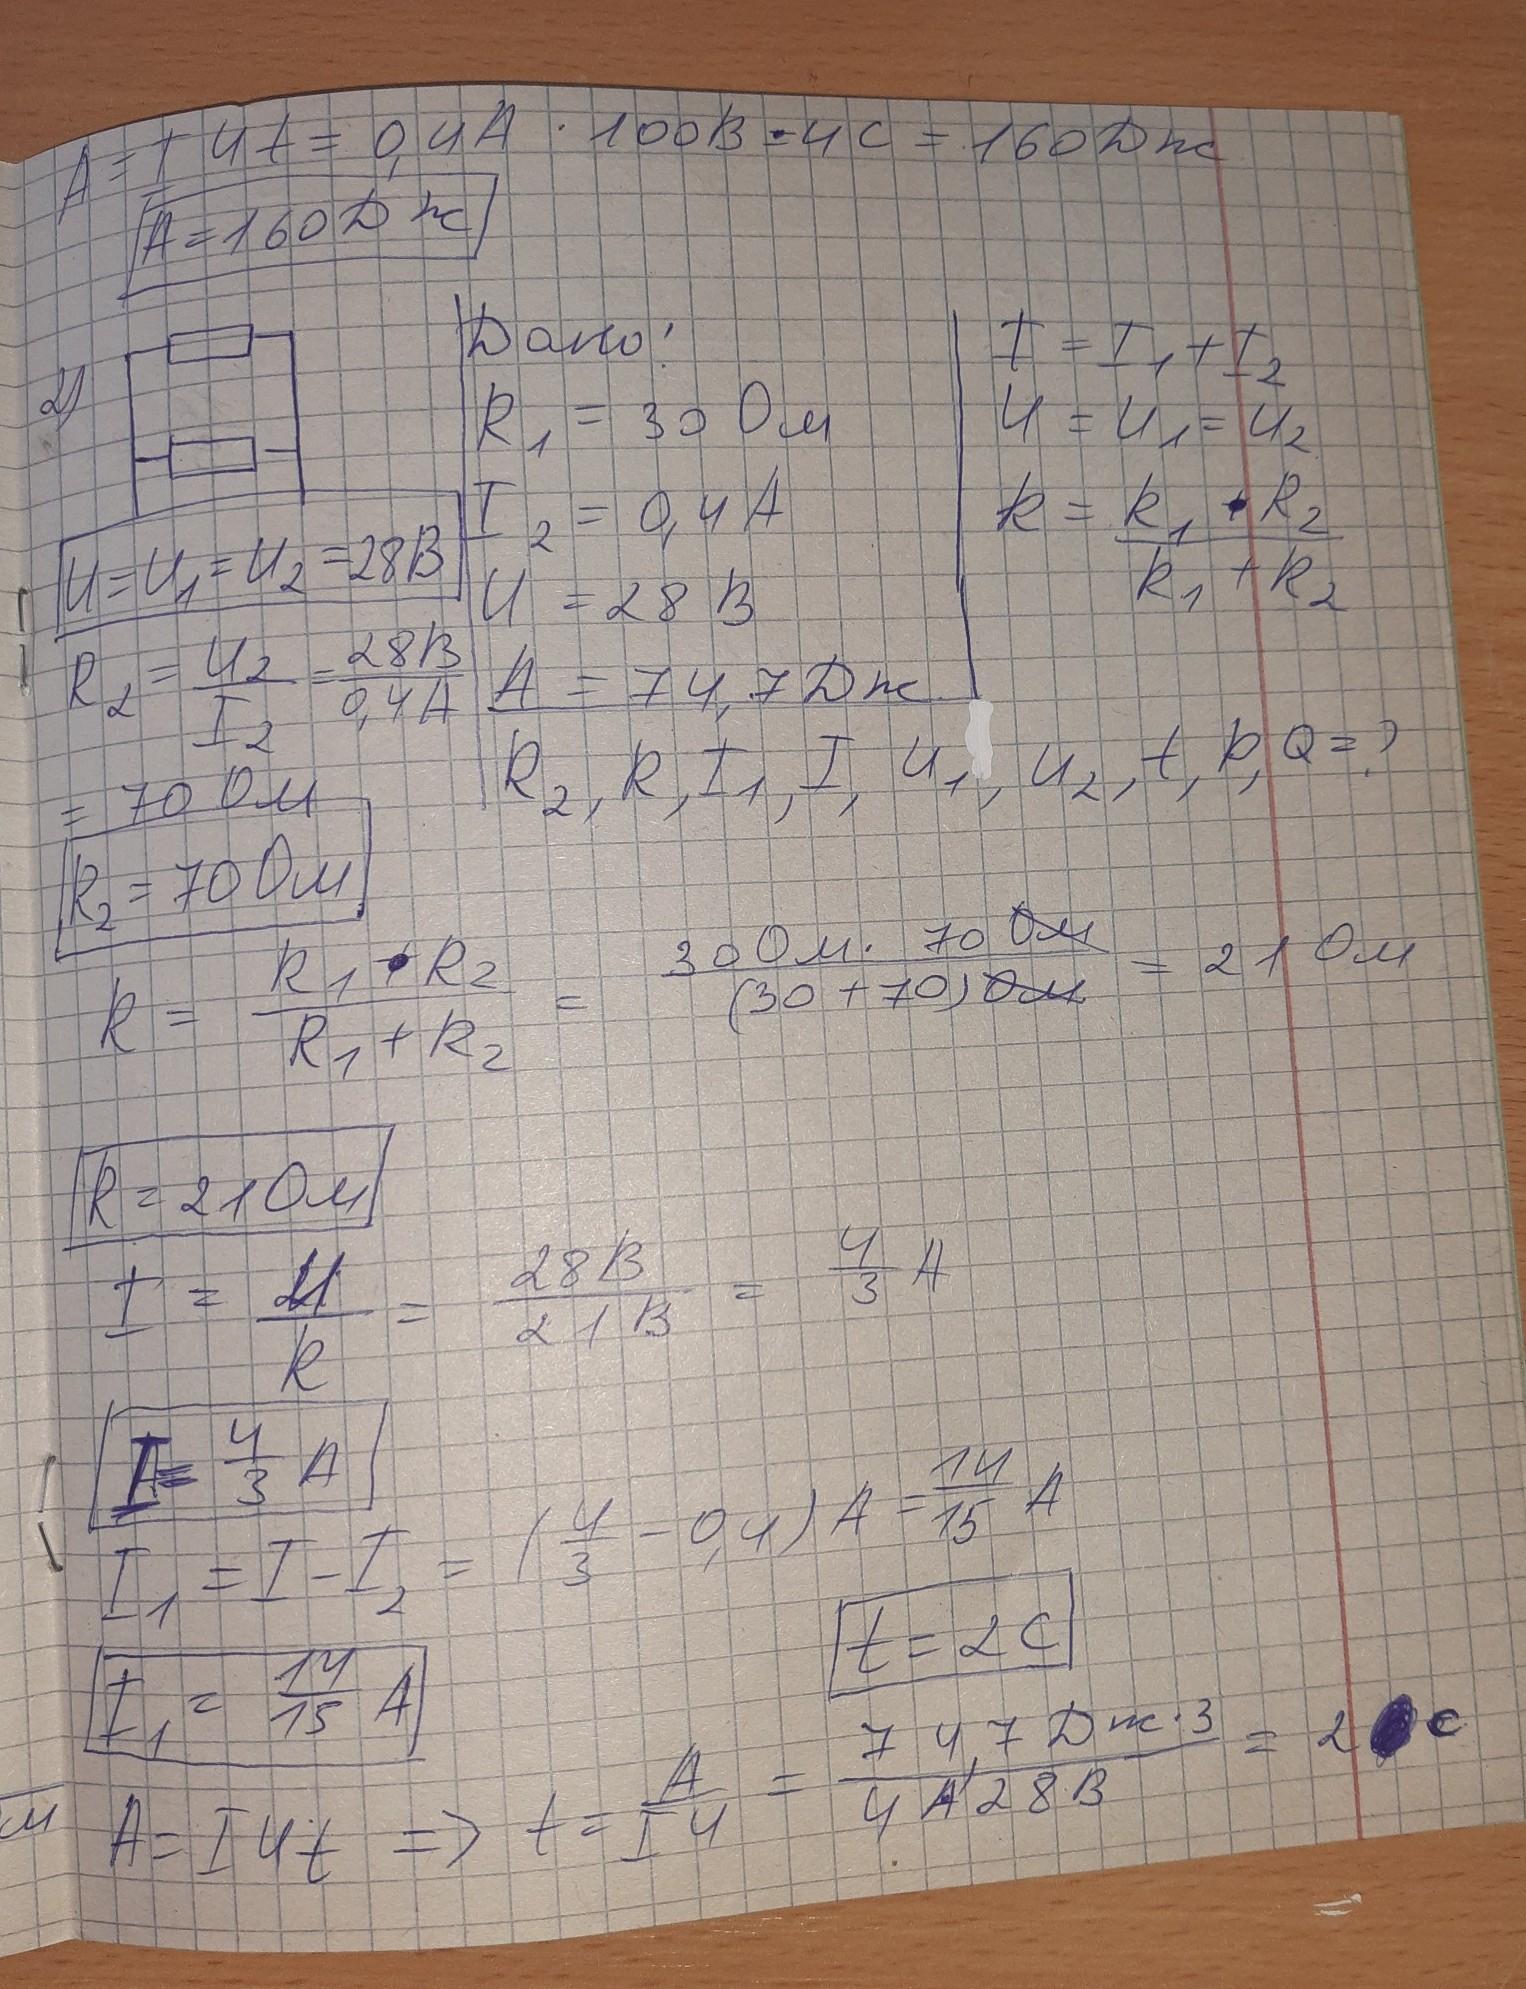 A = IUt = 0,4А · 100В · 4с = 160Дж
A = 160Дж
2)
Дано:
R₁ = 30 Ом
I₂ = 0,4А
U = 28 В
A = 74,7Дж
R₂, R, I₁, I, U₁, U₂, t, P, Q = ?
I = I₁ + I₂
U = U₁ = U₂
R = R₁ · R₂ / R₁ + R₂
U = U₁ = U₂ = 28В
R₂ = U₂ / I₂ = 28В / 0,4А
= 70 Ом
R₂ = 70 Ом
R = R₁ · R₂ / R₁ + R₂ = 30 Ом · 70 Ом / (30 + 70) Ом = 21 Ом
R = 21 Ом
I = U / R = 28В / 21В = 4/3 А
I = 4/3 А
I₁ = I - I₂ = (4/3 - 0,4) А = 14/15 А
I₁ = 14/15 А
t = 2с
A = IUt => t = A / IU = 74,7 Дж · 3 / 4А · 28В = 2 с